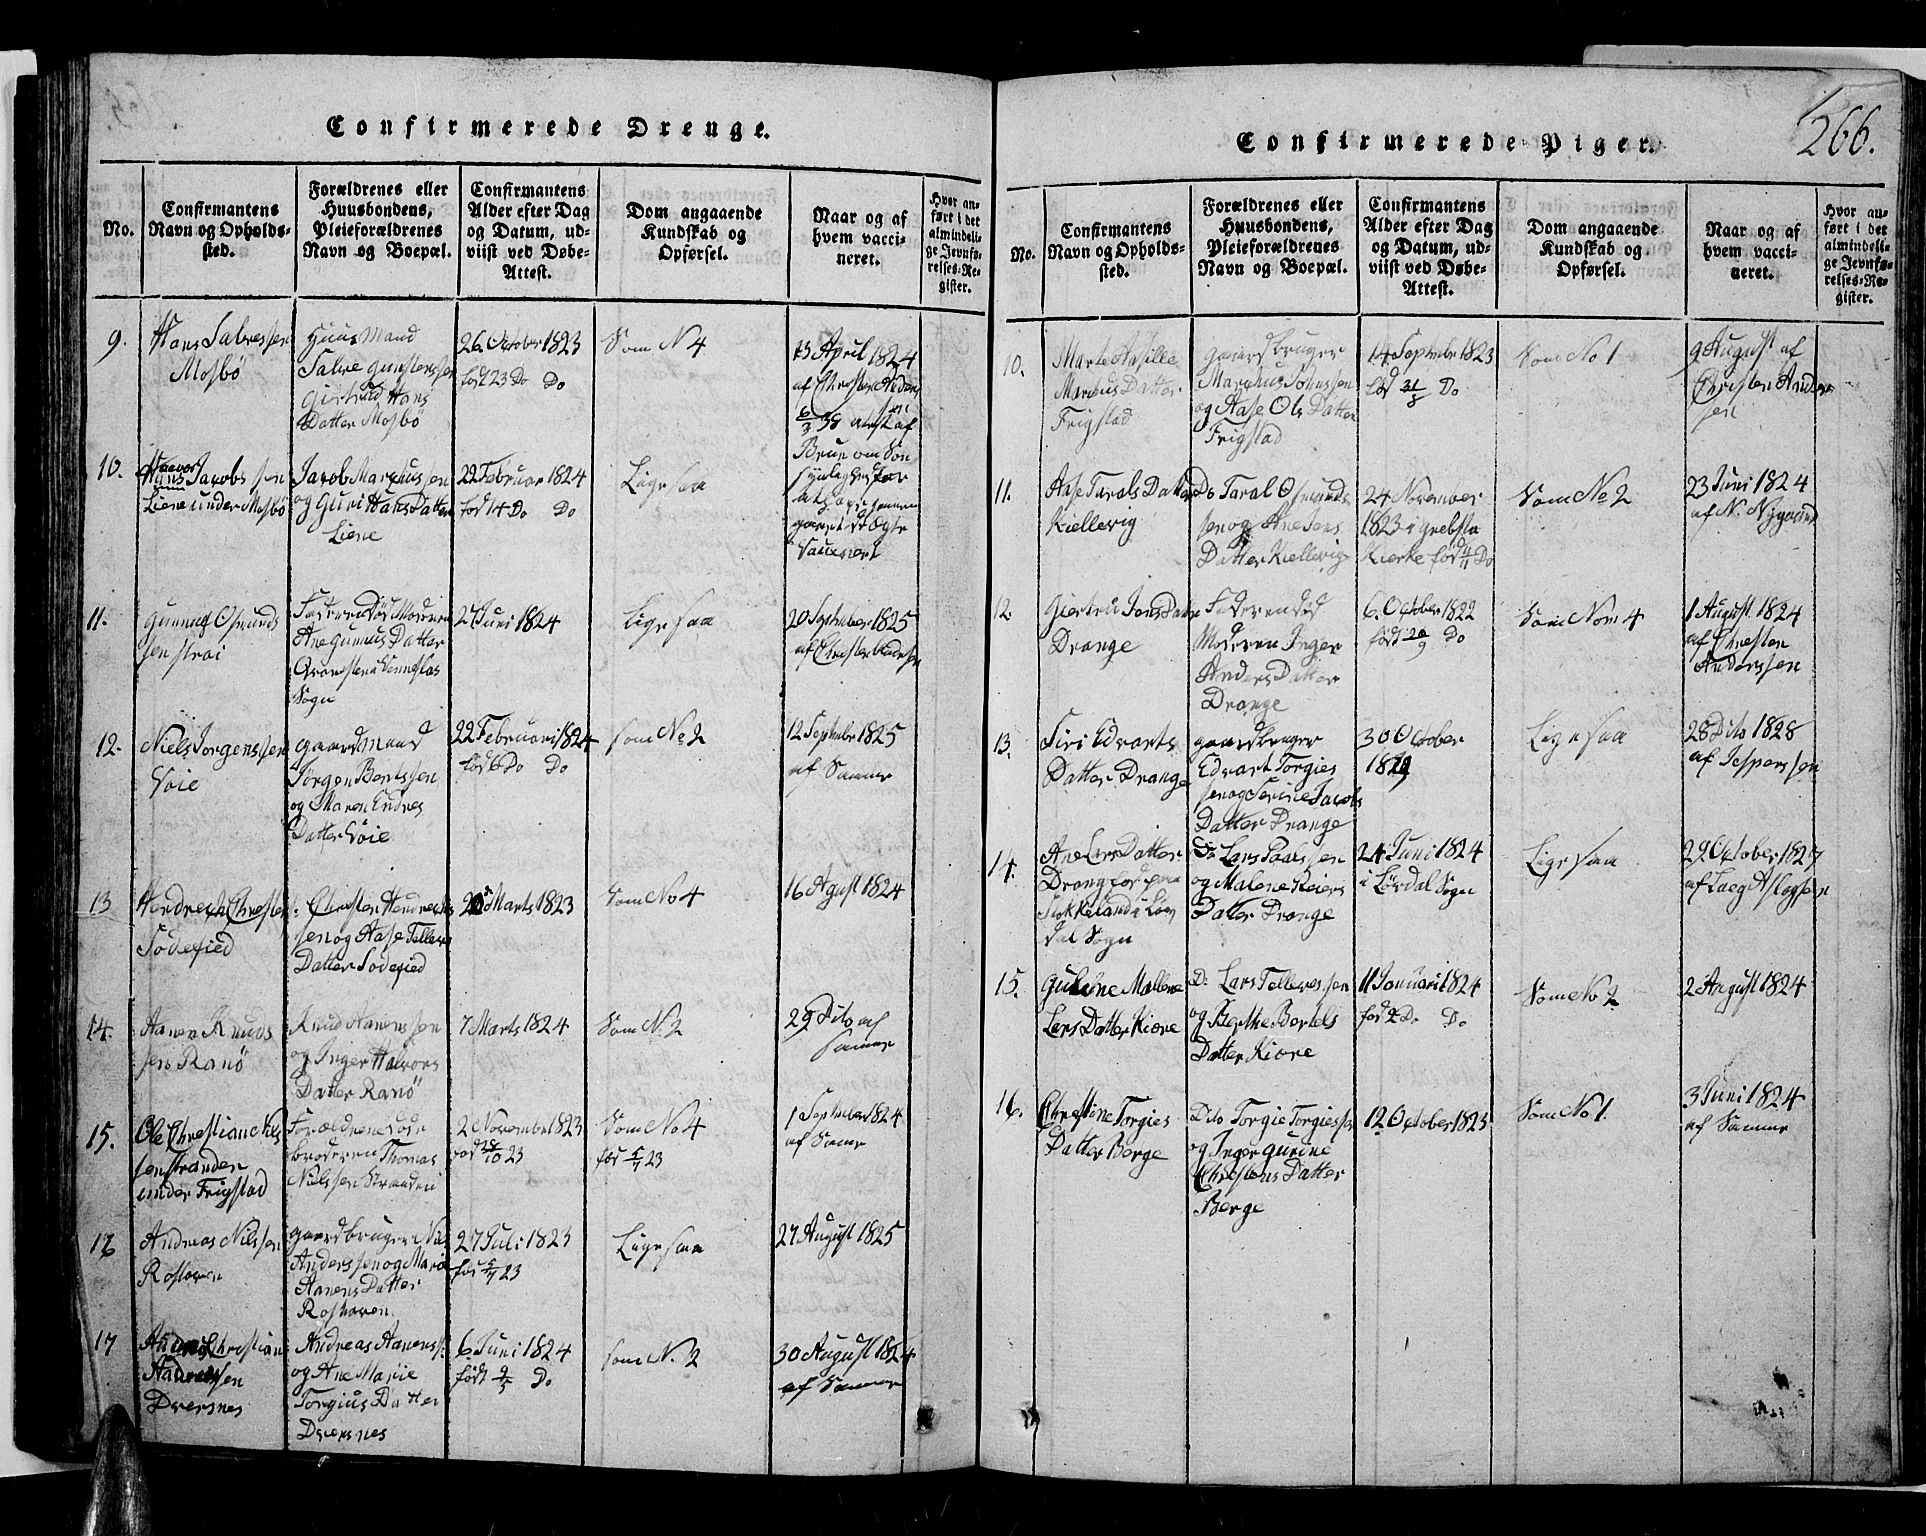 Confirmerede Drenge.
No.
Confirmantens
Navn og Opholds-
sted.
Forældrenes eller
Huusbondens,
Pleieforældrenes
Navn og Boepæl.
Confirmantens
Alder efter Dag
og Datum, ud-
viist ved Døbe-
Attest.
Dom angaaende
Kundskab og
Opførsel.
Naar og af
hvem vacci-
neret.
Hvor an-
ført i det
almindeli-
ge Jevnfø-
relses-Re-
gister.
9.
Hans Salvessen
Mosbö
Huus Mand
Salve Gunstenssen
Giertrud Hans
Datter Mosbö
26. October 1823
född 23 Do Do
Som N 4
13 April 1824
af Christen
attest af
10.
Jacobssen
Liene under Mosbö
Jacob Marchussen
og Guri Hans Datter
Liene
22 Februar 1824
föd 14 Do Do
Ligesaa
11.
Gunnuf Osmunds
sen Strai
Faderen död Moderen
Ane Gunnufs Datter
Sogn
27 Juni 1824
Ligesaa
20 September 1825
af Christen
12.
Niels Jorgenssen
Voie
Gaardmand
Jörgen Berntssen
og Maren Endres
Datter Voie
22 Februari 1824
föd 6 Do Do
som No 2
12 September 1825
af Samme
13
Hendrech Christen
Södefied
Christen Hendrechs
sen og Aase Tellevs
Datter Sodefied
Marts 1823
Som No 4
16 Agust 1824
14.
Aanen Knuds
sen Ranö
Knud Aanenssen
og Inger Haavors
Datter Ranö
7 Marts 1824
Som N. 2
29 Dito af
samme
15.
Ole Christian Nils
sen Stranden
under Frigstad
Forældrene döde
broderen Thomas
Nielssen Stranden
2 November 1823
föd 28/10 23
Som No 4
föd 5/7 23
1 September 1824
af Same
16
Andreas Nilssen
Roshaven
Gaardbruger Nils
Anderssen og Maria
Aanens Datter
Roshaven
27 Juli 1823
föd 5/7 23
Ligesaa
27 August 1825
17
Christian
Andreassen
Dversnes
Andreas Aanenss:
og Ane Marie
Torgius Datter
Dversnes
6 Juni 1824
född 9/5 Do
som N. 2
30 August 1824
af Samme
Confirmerede Piger.
266.
No.
Confirmantens
Navn og Opholds-
sted.
Forældrenes eller
Huusbondens,
Pleieforældrenes
Navn og Boepæl.
Confirmantens
Alder efter Dag
og Datum, ud-
viist ved Døbe-
Attest.
Dom angaaende
Kundskab og
Opførsel.
Naar og af
hvem vacci-
neret.
Hvor an-
ført i det
almindeli-
ge Jevnfø-
relses-Re-
gister.
10.
Marte Aasille
Marcus Datter
Frigstad
Gaardbruger
Marchus Johnssen
og Aase Ols Datter
Frigstad
14 September 1823
föd 31/8 Do
Som No 1
9 August af
Christen Ander
sen
11.
Aase Tarals Datter
Kiellevig
Do Taral Osmunds
sen og Ane Jens
Datter Kiellevig
24 November
1823 i Grebsta
Kierke föd 4/11 Do
Som No 2
23 Juni 1824
af N. Nygaard
12.
Giertru Jens Datter
Drange
Faderen död
Moderen Inger
Anders Datter
Drange
6. October 1822
föd 20/9 Do
Som Nom 4
1 August 1824
af Christen
Anderssen
13.
Siri Edvarts
Datter Drange
Gaardbruger
Edvart Torgies
sen og Serine Jacobs
Datter Drange
30 October
Ligesaa
28 Dito 1828
af Jesperssen
14.
Ane Lars Datter
Drang
Stokkeland i Löv
dal Sogn
Do Lars Paalssen
og Malene Reiers
Datter Drange
24 Juni 1824
i Lövdal Sogn
Ligesaa
29. October 1827
af Taeg Aslagssen
15.
Guline Mallene
Lars Datter Kiöre
Do Lars Tellevssen
og Berthe Bertels
Datter Kiöre
11 Januari 1824
föd 2 Do Do
Som No 2
2 August 1824
16.
Christine Torgies
Datter Berge
Dito Torgie Torgiessen
og Inger Gurine
Christens Datter
Berge
12 October 1823
Som No 1.
3 Juni 1824
af Samme